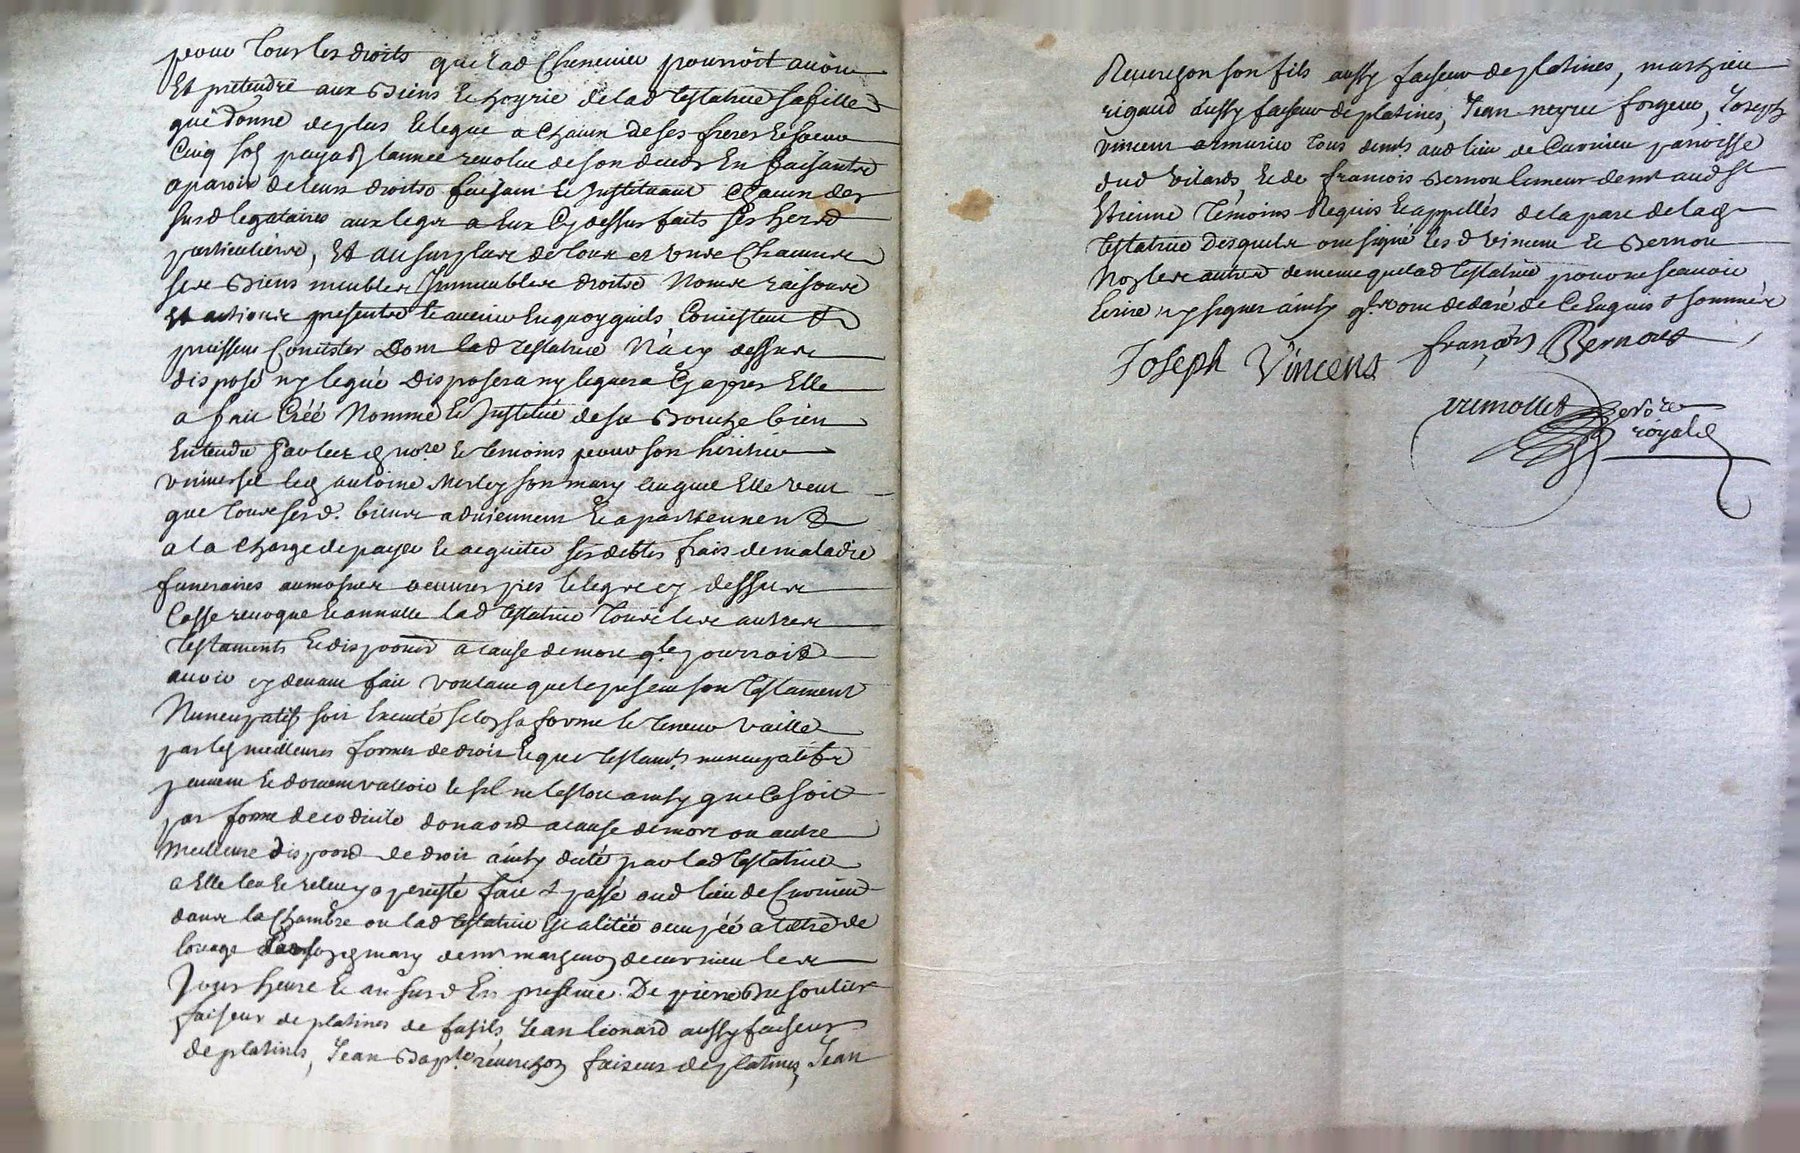 pour tous les droits que lad Chenevier pourroit avoir
Et pretendre aux Biens Et hoyrie de lad testatrice sa fille
qui donne de plus Et legue a Chacun de ses freres Et soeurs
Cinq sols payab lannee revolue de son deces En faisants
aparoir de leurs droits faisant Et Instituant Chacun des
susd legataires aux legs a Eux Cy dessus faits ses herd
particuliers, Et au surplus de tous et uns Chacuns
ses Biens meubles Immeubles droits Noms raisons
Et actions presents Et avenir En quoy quils Consistent Et
puissent Consister Dont lad testatrice N'a cy dessus
disposé ny legué disposera ny leguera Cy apres Elle
a fait Créé Nommé Et Institué de sa Bouche bien
Entendu par led nore Et temoins pour son héritier
universel led antoine Merley son mary auquel Elle veut
que tous sesd. biens adviennent Et apartiennent
a la Charge de payer Et acquiter ses debtes frais de maladie
funeraires aumosnes oeuvres pies Et legs cy dessus
Casse revoque Et annulle lad testatrice tous les autres
testaments Et dispoons a cause de mort qle pourroit
avoir cy devant fait voulant que le present son testament
Nuncupatif soit Executé selon sa forme Et teneur vaille
par les meilleures formes de droit Et que testamts nuncupatifs
peuvent Et doivent valloir Et sil ne lestoit ainsy que Ce soit
par forme de codicile donaon a cause de mort ou autre
Meilleure dispoon de droit ainsy dicté par lad testatrice
a Elle leu Et releu y a persisté fait & passé aud lieu de Curnieu
dans la Chambre ou lad testatrice Est alitée occupée a titre de
louage par sond mary de mr marzenod de curnieu les
Jour heure Et an susd En presence. De pierre Dusoulier
faiseur de platines de fusils, Jean léonard aussy faiseur
de platines, Jean Bapte réverchon faiseur de platines, Jean
Reverchon son fils aussy faiseur de platines, mathieu
rigaud aussy faiseur de platines, Jean neyret forgeur, Joseph
vincent armurier tous demts aud lieu de Curnieu parroisse
dud vilards, Et de francois Bernou limeur demt aud St
Etienne témoins Requis Et appellés de la part de lad
testatrice desquels ont signé lesd vincent Et Bernou
Non les autres de meme que lad testatrice pour ne scavoir
Ecrire ny signer ainsy ql. ont declaré de Ce Enquis & sommés
Joseph Vincent françois Bernout
vrimollet nore
royal